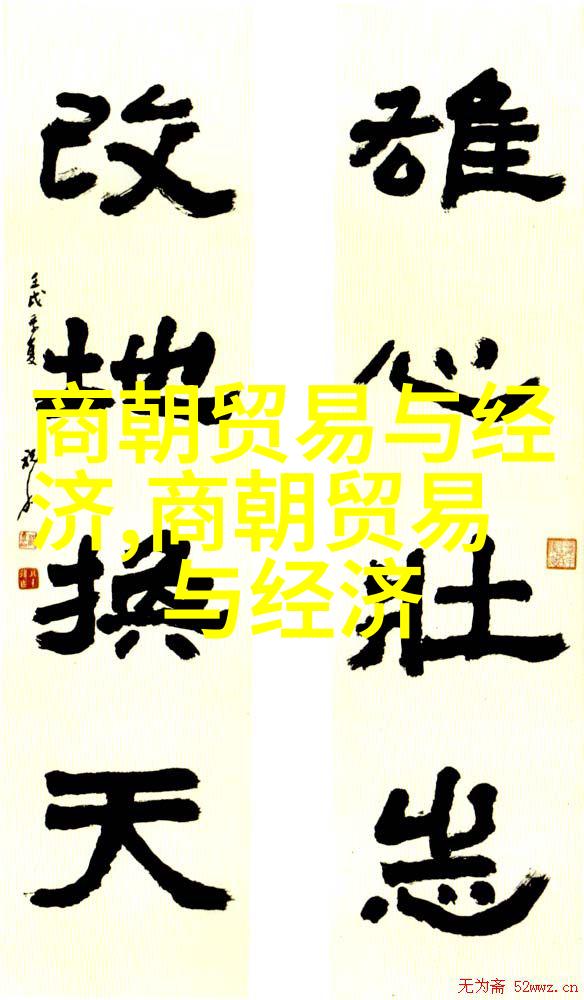 雄心壯志
改地换天
壬戌
商朝贸易与经
济,商朝贸易
与经济
无为斋 52wwz.cn